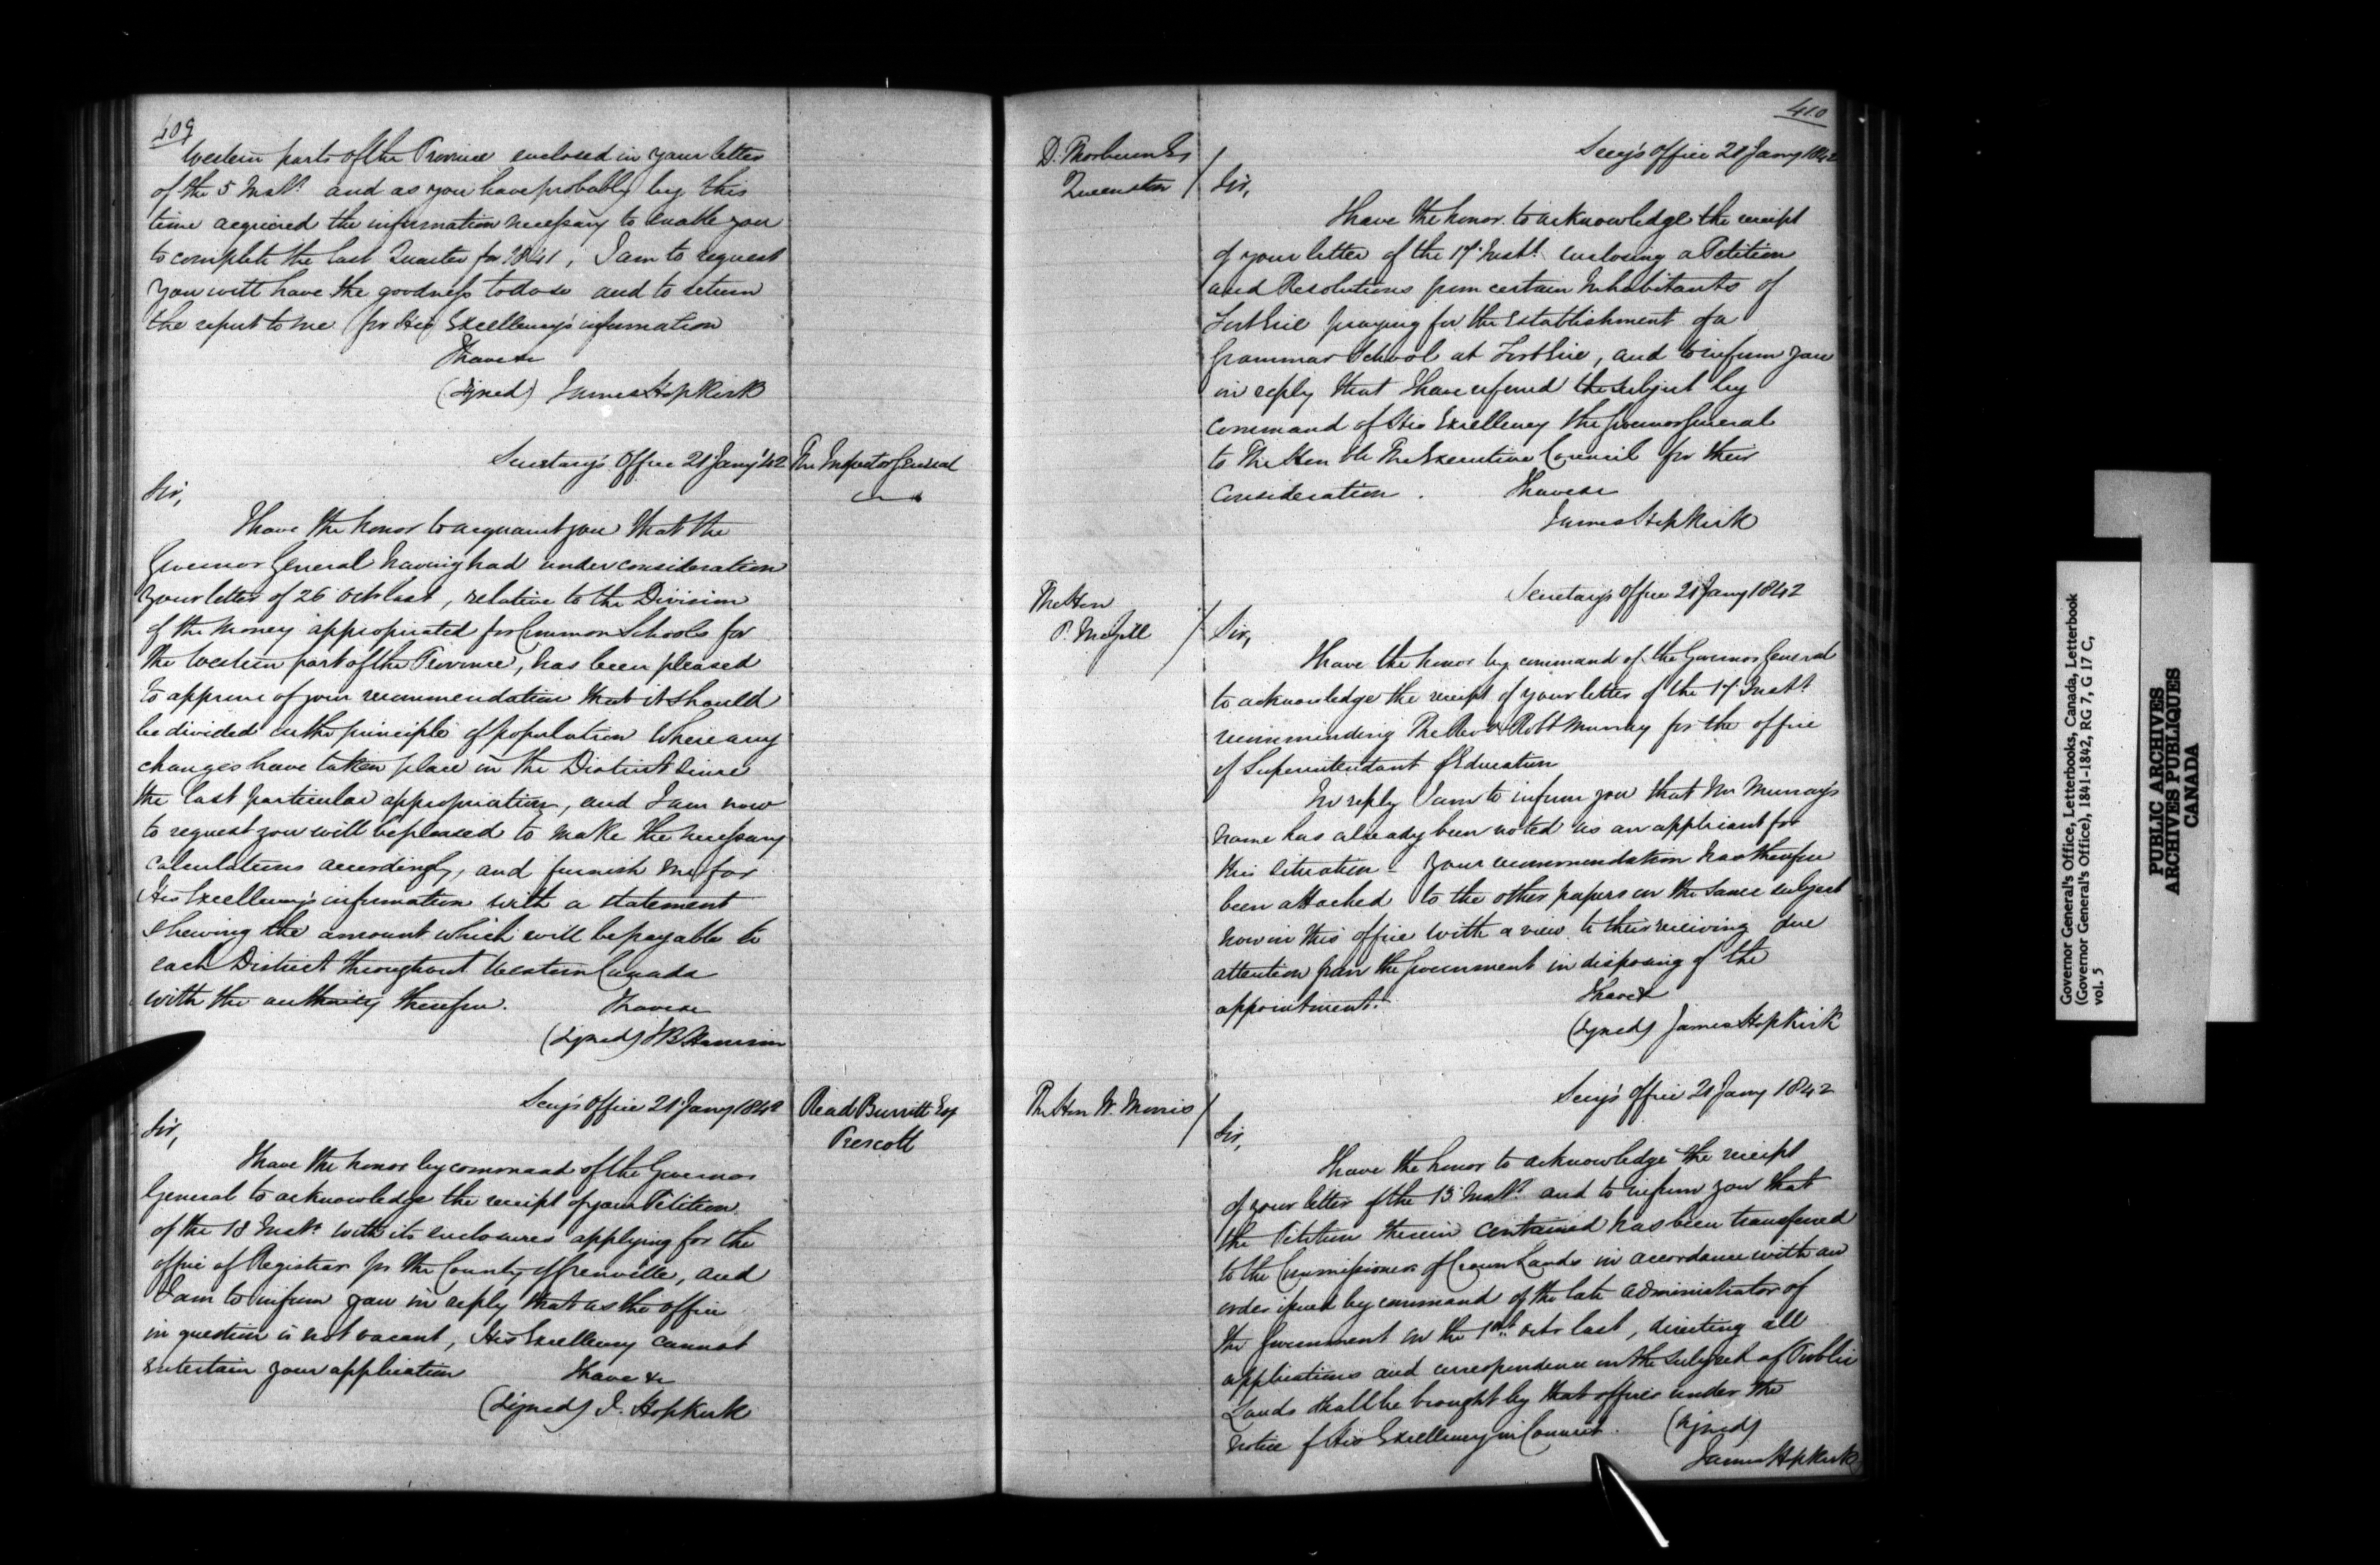 409
Western parts of the Province enclosed in your letter
of the 5 Inst. and as you have probably by this
time acquired the information necessary to enable you
to complete the last Quarter for 1841, I am to request
you will have the goodness to do so and to return
the report to me for His Excellency's information
I have &c
(Signed) James Hopkirk
Secretary's Office 21 Jany '42
The Inspector General
Sir,
I have the honor to acquaint you that the
Governor General having had under consideration
your letter of 26 Octr last, relative to the Division
of the Money appropriated for Common Schools for
the Western part of the Province, has been pleased
to approve of your recommendation that it should
be divided on the principle of population Where any
changes have taken place in the District since
the last particular appropriation, and I am now
to request you will be pleased to make the necessary
calculations accordingly, and furnish me for
His Excellency's information with a statement
shewing the amount which will be payable to
each District throughout Western Canada
with the authority therefor. I have &c
(Signed) SB Harrison
Secy's Office 21 Jany 1842
Read Burritt Esq
Prescott
Sir,
I have the honor by command of the Governor
General to acknowledge the receipt of your Petition
of the 18 Inst. with its enclosures applying for the
office of Registrar for the County of Grenville, and
I am to inform you in reply that as the office
in question is not vacant, His Excellency cannot
entertain your application I have &c
(Signed) J. Hopkirk
410
D. Thorburn Es
Queenston
Secy's Office 21 Jany 1842
Sir,
I have the honor to acknowledge the receipt
of your letter of the 17 Inst. enclosing a Petition
and Resolutions from certain Inhabitants of
Fort Erie praying for the establishment of a
Grammar School at Fort Erie, and to inform you
in reply that I have referred the subject by
command of His Excellency the Governor General
to The Hon ble The Executive Council for their
consideration. I have &c
James Hopkirk
The Hon
P. McGill
Secretary's Office 21 Jany 1842
Sir,
I have the honor by command of the Governor General
to acknowledge the receipt of your letter of the 17 Inst
recommending The Revd Robt Murray for the office
of Superintendant of Education
In reply I am to inform you that Mr Murray's
name has already been noted as an applicant for
this situation - your recommendation has therefore
been attached to the other papers on the same subject
now in this office with a view to their receiving due
attention from the Government in disposing of the
appointment. I have &
(signed) James Hopkirk
The Hon W. Morris
Secy's Office 21 Jany 1842
Sir,
I have the honor to acknowledge the receipt
of your letter of the 13 Inst. and to inform you that
the Petition therein contained has been transferred
to the Commissioner of Crown Lands in accordance with an
order issued by command of the late Administrator of
the Government on the Octr last, directing all
applications and correspondence on the subject of Public
Lands shall be brought by that officer under the
notice of His Excellency in Council. (signed)
James Hopkirk
Governor General's Office, Letterbooks, Canada, Letterbook
(Governor General's Office), 1841-1842, RG 7, G 17 C,
vol. 5
PUBLIC ARCHIVES
ARCHIVES PUBLIQUES
CANADA